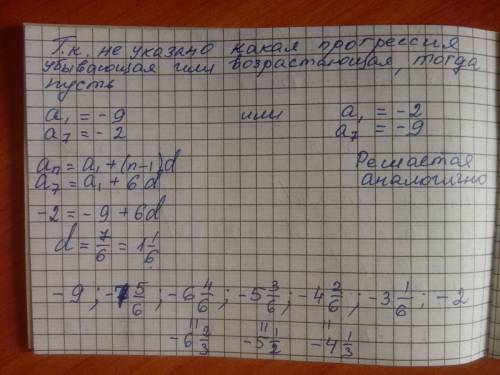 Т.к. не указано какая прогрессия
убывающая или возрастающая, тогда
пусть
a₁ = -9 или a₁ = -2
a₇ = -2 a₇ = -9
aₙ = a₁ + (n-1)d Решается
a₇ = a₁ + 6d аналогично
-2 = -9 + 6d
d = 7/6 = 1 1/6
-9 ; -7 5/6 ; -6 4/6 ; -5 3/6 ; -4 2/6 ; -3 1/6 ; -2
" " "
-6 2/3 -5 1/2 -4 1/3